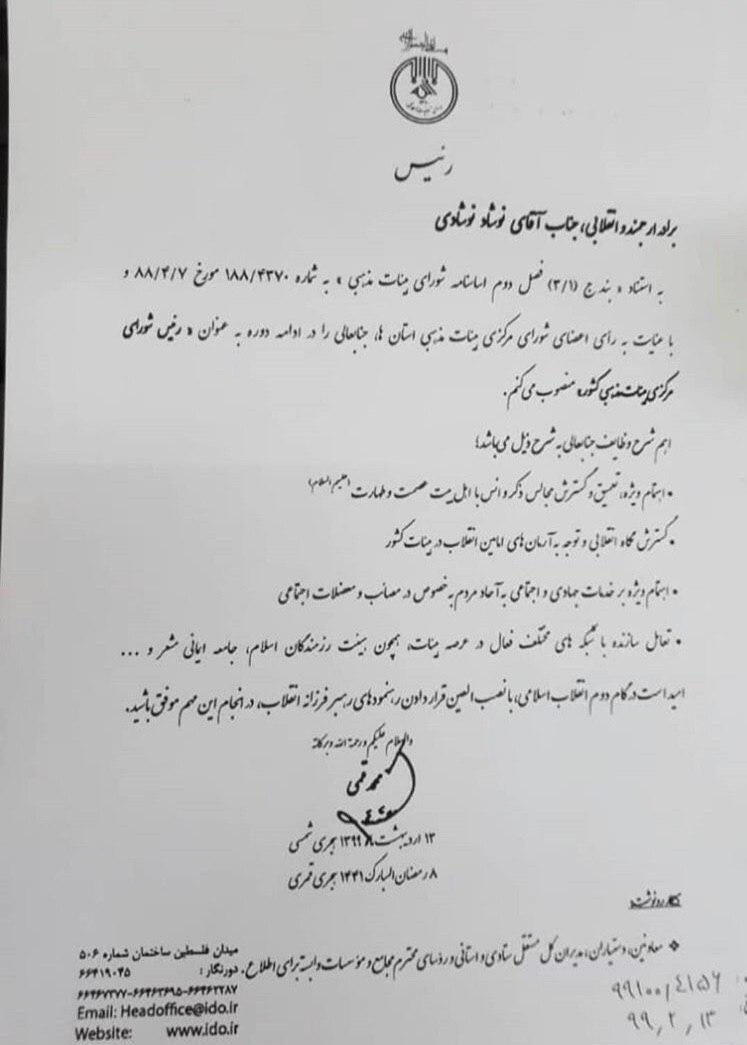 رئیس
برادر ارجمند و انقلابی، جناب آقای نوشاد نوشادی
به استناد « بند ج (۳/۱) فصل دوم اساسنامه شورای هیئات مذهبی » به شماره ۱۸۸/۴۳۷۰ مورخ ۸۸/۴/۷ و
با عنایت به رأی اعضای شورای مرکزی هیئات مذهبی استان ها، جنابعالی را در ادامه دوره به عنوان « رئیس شورای
مرکزی هیئات مذهبی کشور» منصوب می‌کنم.
اهم شرح وظایف جنابعالی به شرح ذیل می‌باشد؛
• اهتمام ویژه، تعمیق و گسترش مجالس ذکر و انس با اهل بیت عصمت و طهارت (علیهم السلام)
• گسترش نگاه انقلابی و توجه به آرمان‌های امامین انقلاب در هیئات کشور
• اهتمام ویژه بر خدمات جهادی و اجتماعی به آحاد مردم به خصوص در مصائب و معضلات اجتماعی
• تعامل سازنده با شبکه های مختلف فعال در عرصه هیئات، همچون هیئت رزمندگان اسلام، جامعه ایمانی مشعر و ...
امید است در گام دوم انقلاب اسلامی، با نصب العین قرار دادن رهنمودهای رهبر فرزانه انقلاب، در انجام این مهم موفق باشید.
والسلام علیکم و رحمة الله و برکاته
محمد قمی
۱۳ اردیبهشت ۱۳۹۹ هجری شمسی
۸ رمضان المبارک ۱۴۴۱ هجری قمری
رونوشت:
❖ معاونین، دستیاران، مدیران کل مستقل ستادی و استانی و رؤسای محترم مجامع و مؤسسات وابسته برای اطلاع.
میدان فلسطین ساختمان شماره ۵۰۶
دورنگار: ۶۶۴۱۹۰۴۵
۶۶۴۶۷۳۷۷-۶۶۴۶۳۶۹۵-۶۶۴۶۲۲۸۷
Email: Headoffice@ido.ir
Website: www.ido.ir
۹۹۱۰۰٫۴۱۵۶
۹۹٫۲٫۱۳